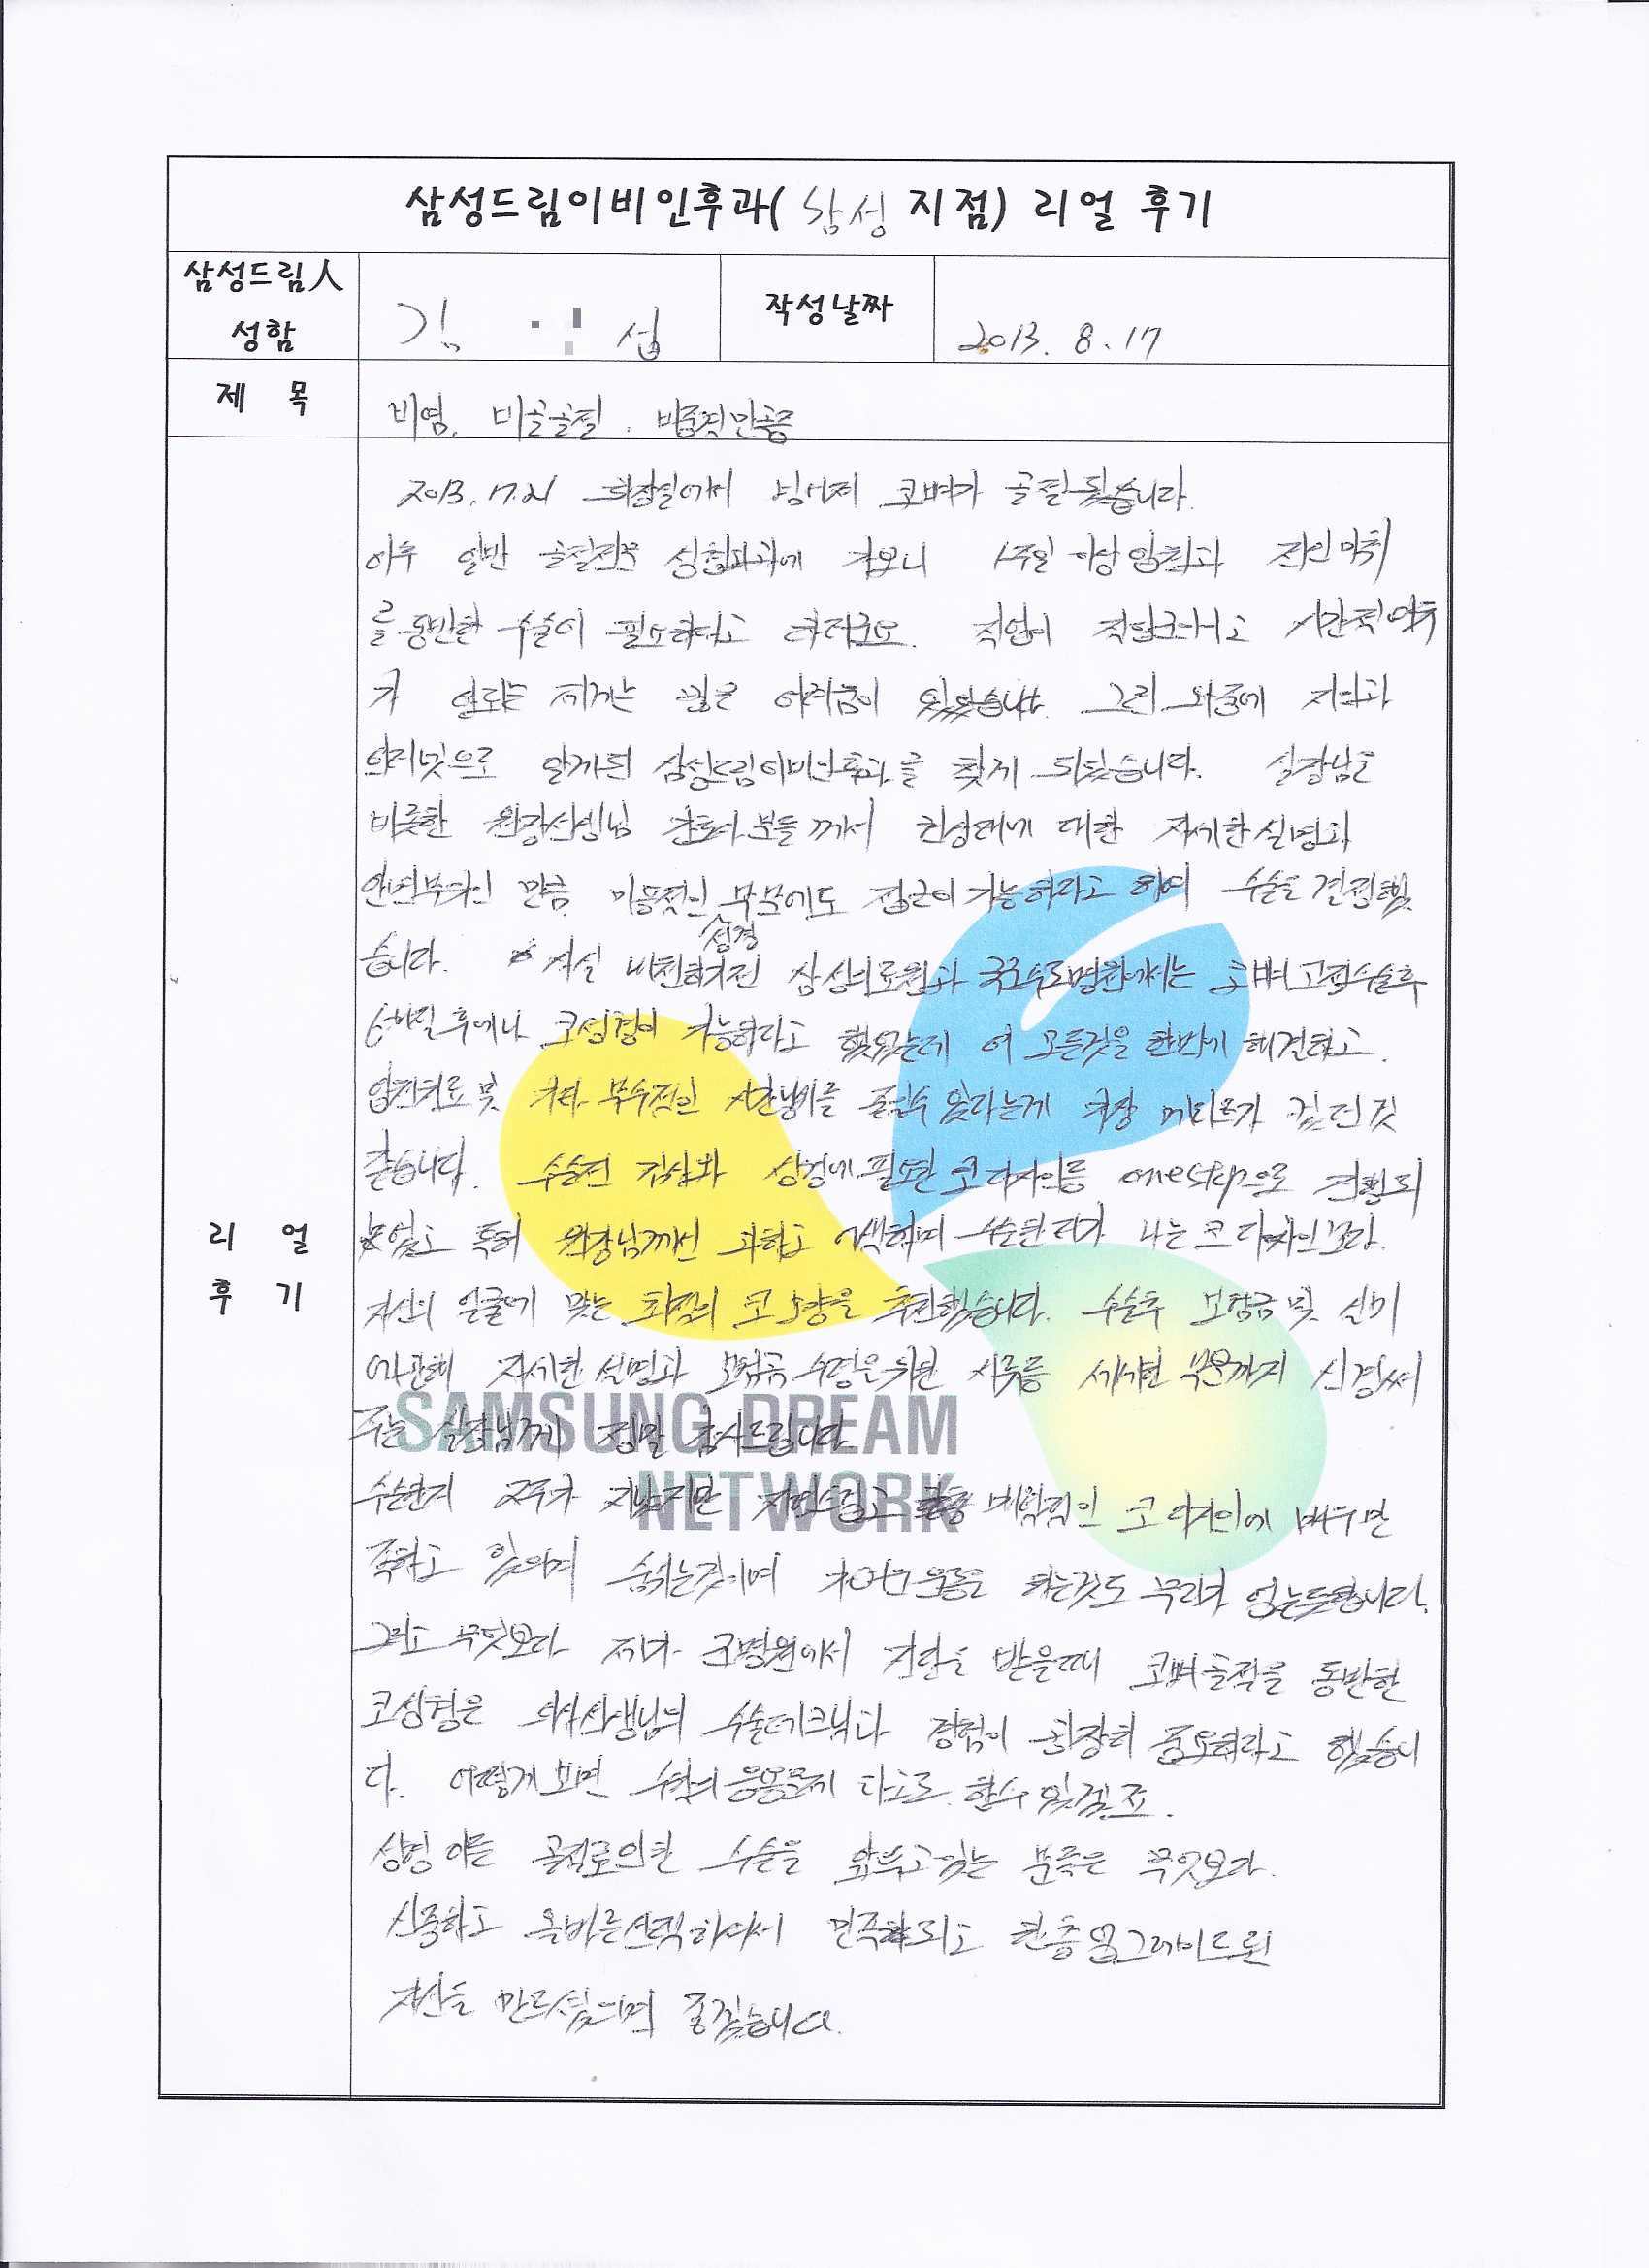 삼성드림이비인후과( 삼성 지점) 리얼 후기
삼성드림人
성함
김 섭
작성날짜
2013. 8. 17
제 목
비염, 비골골절, 비중격만곡증
2013. 7. 21 화장실에서 넘어져 코뼈가 골절됐습니다.
이후 일반 골절전문 성형외과에 가보니 1주일 이상 입원과 전신마취
를 동반한 수술이 필요하다고 하더군요. 직업이 직업 시간적 여유
가 없는 저에게는 어려움이 있었습니다. 그런 와중에 지인과
인터넷으로 알게된 삼성드림이비인후과를 찾게 되었습니다. 실장님을
비롯한 원장선생님 간호사분들께서 대한 자세한 설명과
만큼 미용적인 부분에도 접근이 가능하다고 하여 수술을 결정했
성형
습니다. 사실 삼성의료원과 국군수도병원에서는 코뼈 고정수술후
6개월 후에나 코성형이 가능하다고 했었는데 이 모든것을 한번에 해결하고.
입원치료 및 기타 부수적인 시간낭비를 줄일수 있다는게 가장 메리트가 컸던것
같습니다. 수술전 검사와 성형에 필요한 코디자인등 onestep으로 진행되
었고 특히 원장님께선 과하고 어색하며 수술한티가 나는 코 디자인보다.
자신의 얼굴에 맞는 최적의 코 모양을 추천했습니다. 수술후 보험금 및 실비
에 관해 자세한 설명과 보험금 수령을 위한 서류등 세세한 부분까지 신경써
주는 실장님께 정말 감사드립니다.
SAMSUNG DREAM
NETWORK
수술한지 2주가 지났지만 자연스럽고 매력적인 코 디자인에 매우 만
족하고 있으며 숨쉬는것이며 운동을 하는것도 무리가 없는듯합니다.
그리고 무엇보다 제가 큰병원에서 진찰을 받을때 코뼈골절을 동반한
코성형은 의사선생님의 수술테크닉과 경험이 굉장히 중요하다고 했습니
다. 어떻게 보면 수학의 응용문제 라고도 할수 있겠죠.
성형 또는 골절로인한 수술을 앞두고있는 분들은 무엇보다.
신중하고 올바른선택하여서 만족하시고 한층 업그레이드된
자신을 만드셨으면 좋겠습니다.
리 얼
후 기